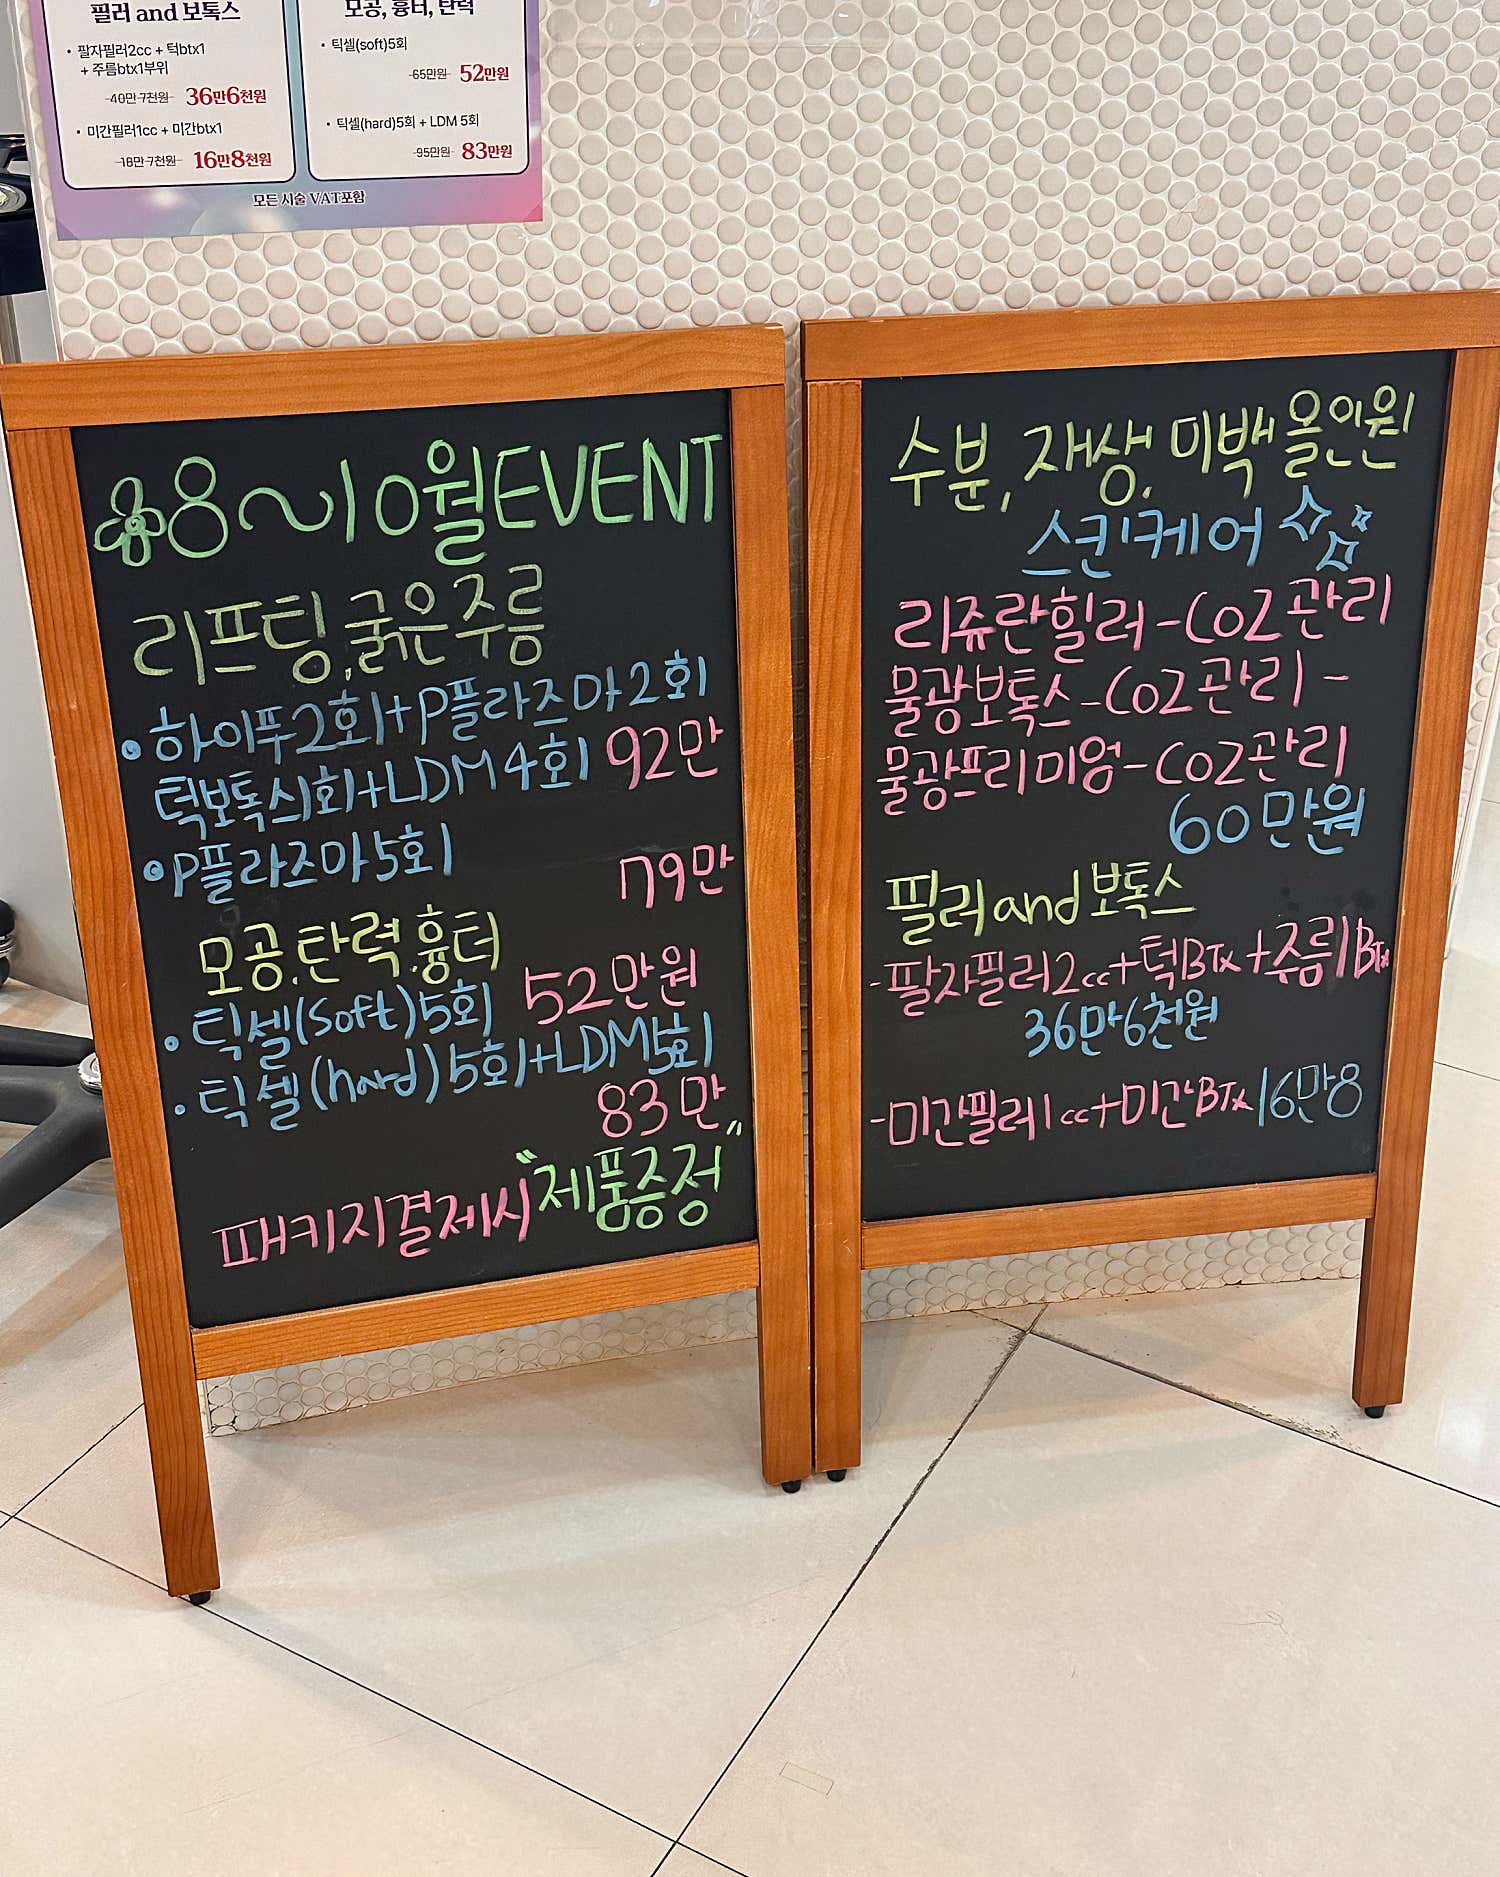 필러 and 보톡스
• 팔자필러2cc + 턱btx1
+ 주름btx1부위
40만 7천원 36만6천원
• 미간필러1cc + 미간btx1
18만 7천원 16만8천원
모공, 흉터, 탄력
• 틱셀(soft)5회
65만원 52만원
• 틱셀(hard)5회 + LDM 5회
95만원 83만원
모든 시술 VAT포함
8~10월EVENT
리프팅, 굵은주름
• 하이푸2회+P플라즈마2회
턱보톡스1회+LDM4회 92만
• P플라즈마5회
79만
모공.탄력.흉터
• 틱셀(soft)5회 52만원
• 틱셀(hard)5회+LDM5회
83만
패키지결제시 "제품증정"
수분, 재생, 미백 올인원
스킨케어
리쥬란힐러-CO2관리
물광보톡스-CO2관리-
물광프리미엄-CO2관리
60만원
필러and보톡스
-팔자필러2cc+턱BTx+주름1BTx
36만6천원
-미간필러1cc+미간BTx 16만8